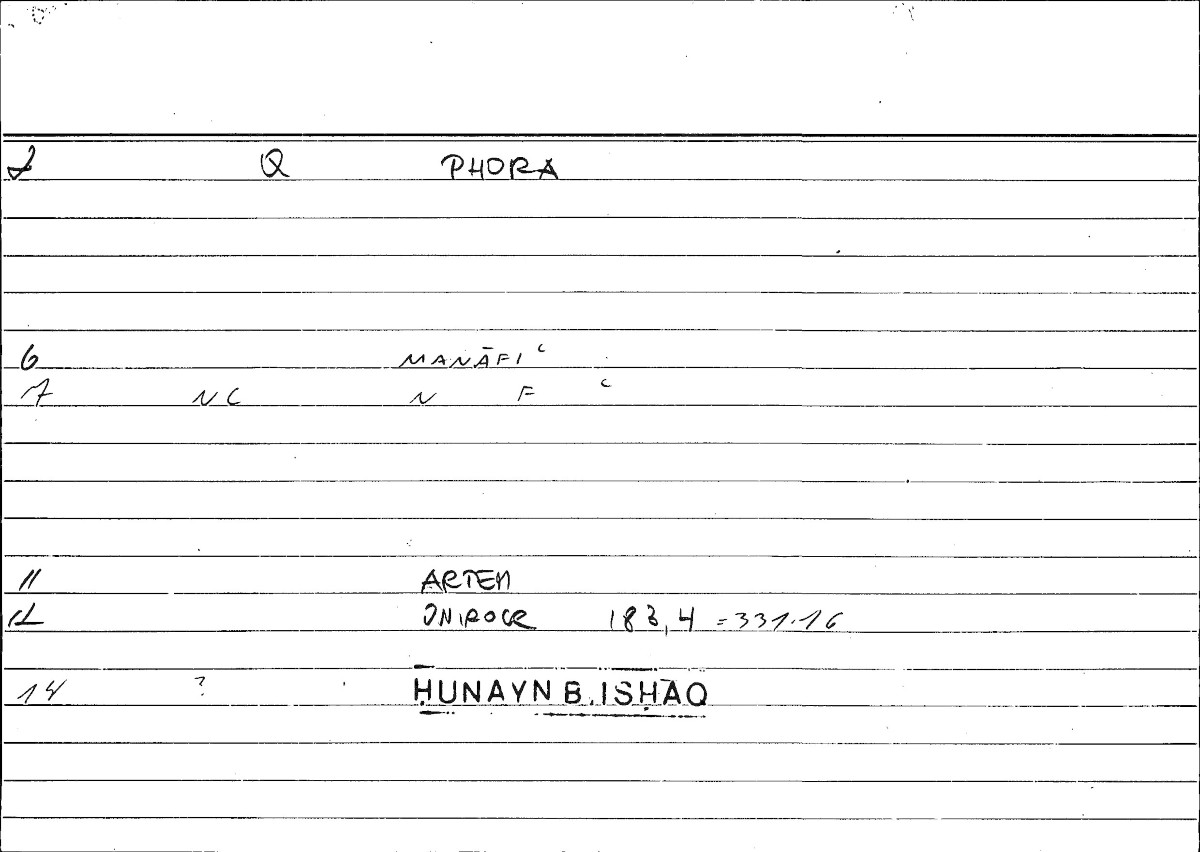 2 Q PHORA
6 MANĀFI ʿ
7 NC N F ʿ
11 ARTEM
12 ONIROCR 183,4 =331.16
14 ? ḤUNAYN B. ISḤĀQ